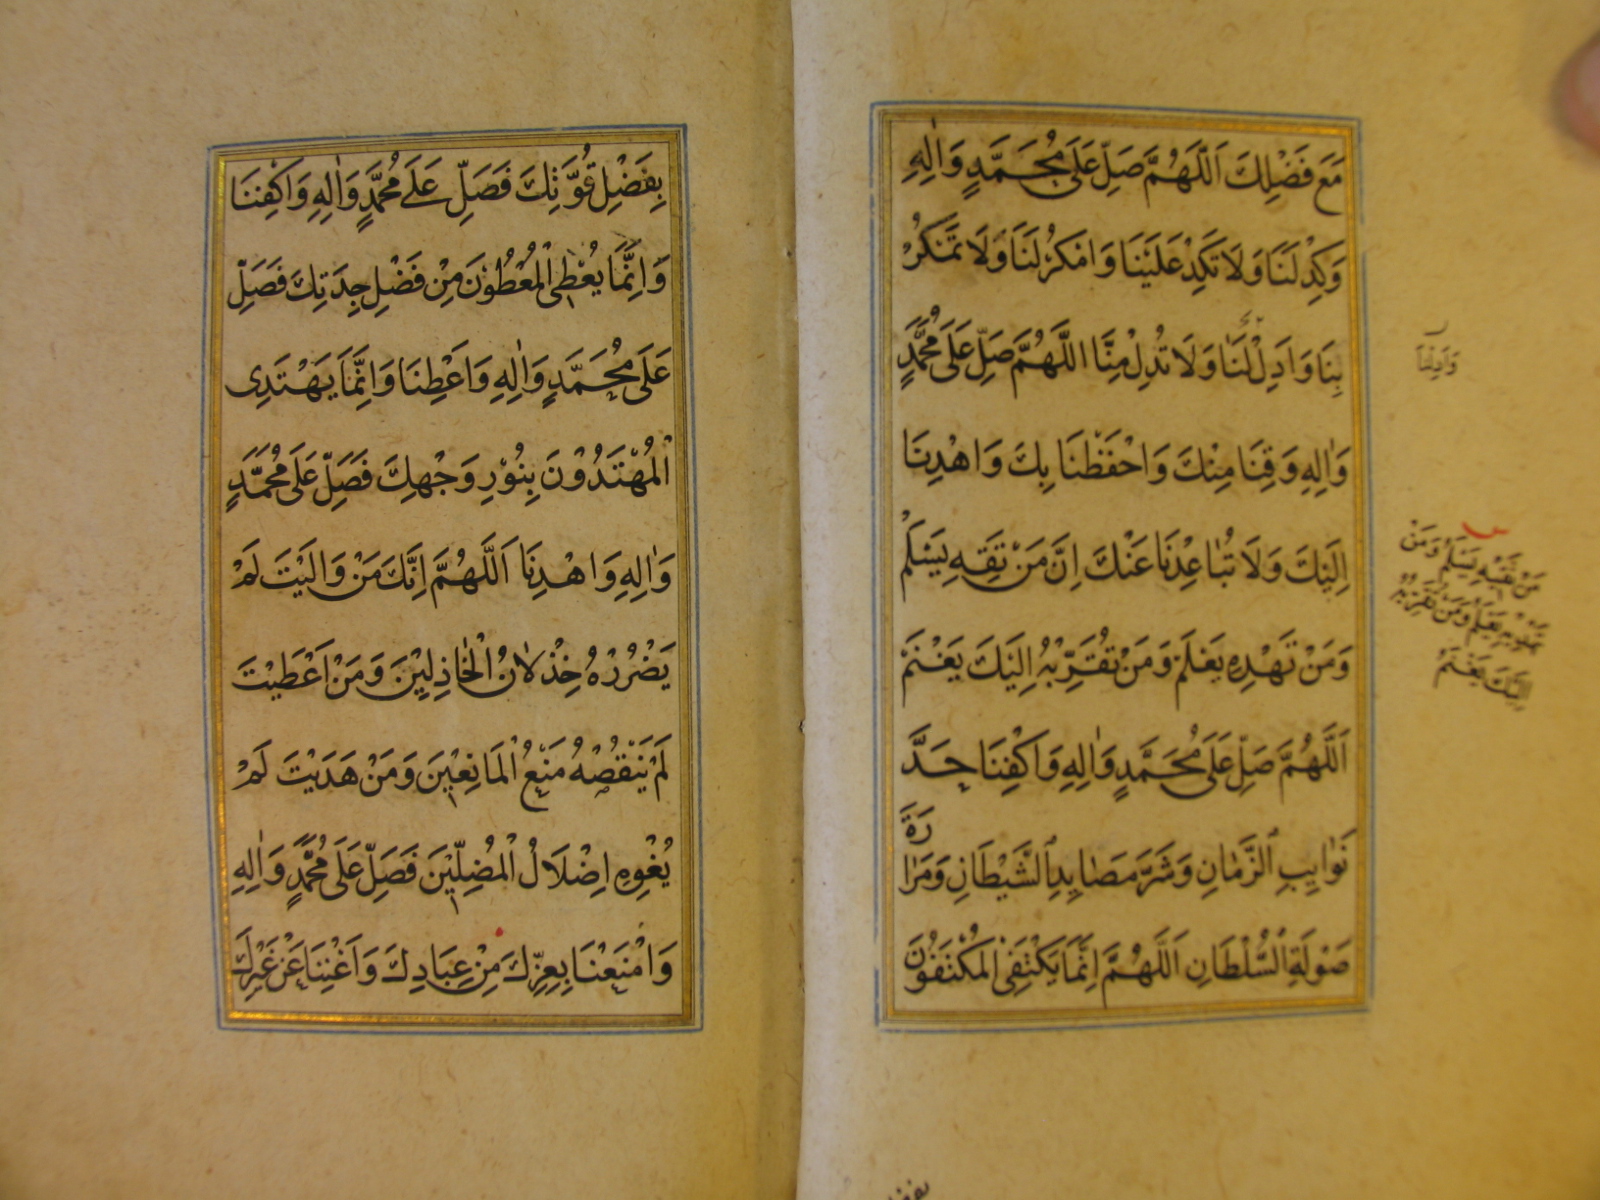 مَعَ فَضْلِكَ اَللّٰهُمَّ صَلِّ عَلَى مُحَمَّدٍ وَاٰلِهِ
وَكِدْ لَنَا وَلَا تَكِدْ عَلَيْنَا وَامْكُرْ لَنَا وَلَا تَمْكُرْ
بِنَا وَاَدِلْ لَنَا وَلَا تُدِلْ مِنَّا اَللّٰهُمَّ صَلِّ عَلَى مُحَمَّدٍ
وَاٰلِهِ وَقِنَا مِنْكَ وَاحْفَظْنَا بِكَ وَاهْدِنَا
اِلَيْكَ وَلَا تُبَاعِدْنَا عَنْكَ اِنَّ مَنْ تَقِهِ يَسْلَمْ
وَمَنْ تَهْدِهِ يَعْلَمْ وَمَنْ تُقَرِّبْهُ اِلَيْكَ يَغْنَمْ
اَللّٰهُمَّ صَلِّ عَلَى مُحَمَّدٍ وَاٰلِهِ وَاكْفِنَا حَدَّ
نَوَايِبِ الزَّمَانِ وَشَرَّ مَصَايِدِ الشَّيْطَانِ وَمَرَارَةَ
صَوْلَةِ السُّلْطَانِ اَللّٰهُمَّ اِنَّمَا يَكْتَفِي الْمُكْتَفُوْنَ
وَاَدِلْنَا
مَنْ تَقِهِ يَسْلَمْ وَمَنْ
تَهْدِهِ يَعْلَمْ وَمَنْ تُقَرِّبْهُ
اِلَيْكَ يَغْنَمْ
بِفَضْلِ قُوَّتِكَ فَصَلِّ عَلَى مُحَمَّدٍ وَاٰلِهِ وَاكْفِنَا
وَاِنَّمَا يُعْطِى الْمُعْطُوْنَ مِنْ فَضْلِ جِدَتِكَ فَصَلِّ
عَلَى مُحَمَّدٍ وَاٰلِهِ وَاَعْطِنَا وَاِنَّمَا يَهْتَدِى
الْمُهْتَدُوْنَ بِنُوْرِ وَجْهِكَ فَصَلِّ عَلَى مُحَمَّدٍ
وَاٰلِهِ وَاهْدِنَا اَللّٰهُمَّ اِنَّكَ مَنْ وَالَيْتَ لَمْ
يَضْرُرْهُ خِذْلَانُ الْخَاذِلِيْنَ وَمَنْ اَعْطَيْتَ
لَمْ يَنْقُصْهُ مَنْعُ الْمَانِعِيْنَ وَمَنْ هَدَيْتَ لَمْ
يُغْوِهِ اِضْلَالُ الْمُضِلِّيْنَ فَصَلِّ عَلَى مُحَمَّدٍ وَاٰلِهِ
وَامْنَعْنَا بِعِزِّكَ مِنْ عِبَادِكَ وَاَغْنِنَا عَنْ غَيْرِكَ